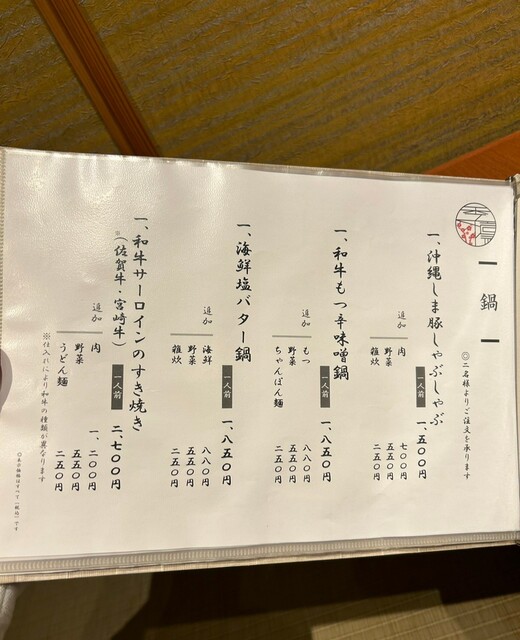 鍋
◎二名様よりご注文を承ります
一、沖縄しま豚しゃぶしゃぶ
一人前 一、五〇〇円
追加
肉 七〇〇円
野菜 五五〇円
雑炊 二五〇円
一、和牛もつ辛味噌鍋
一人前 一、八五〇円
追加
もつ 八八〇円
野菜 五五〇円
ちゃんぽん麺 二五〇円
一、海鮮塩バター鍋
一人前 一、八五〇円
追加
海鮮 八八〇円
野菜 五五〇円
雑炊 二五〇円
一、和牛サーロインのすき焼き
※（佐賀牛・宮崎牛）
一人前 二、七〇〇円
追加
肉 一、二〇〇円
野菜 五五〇円
うどん麺 二五〇円
※仕入れにより和牛の種類が異なります
◎表示価格はすべて（税込）です